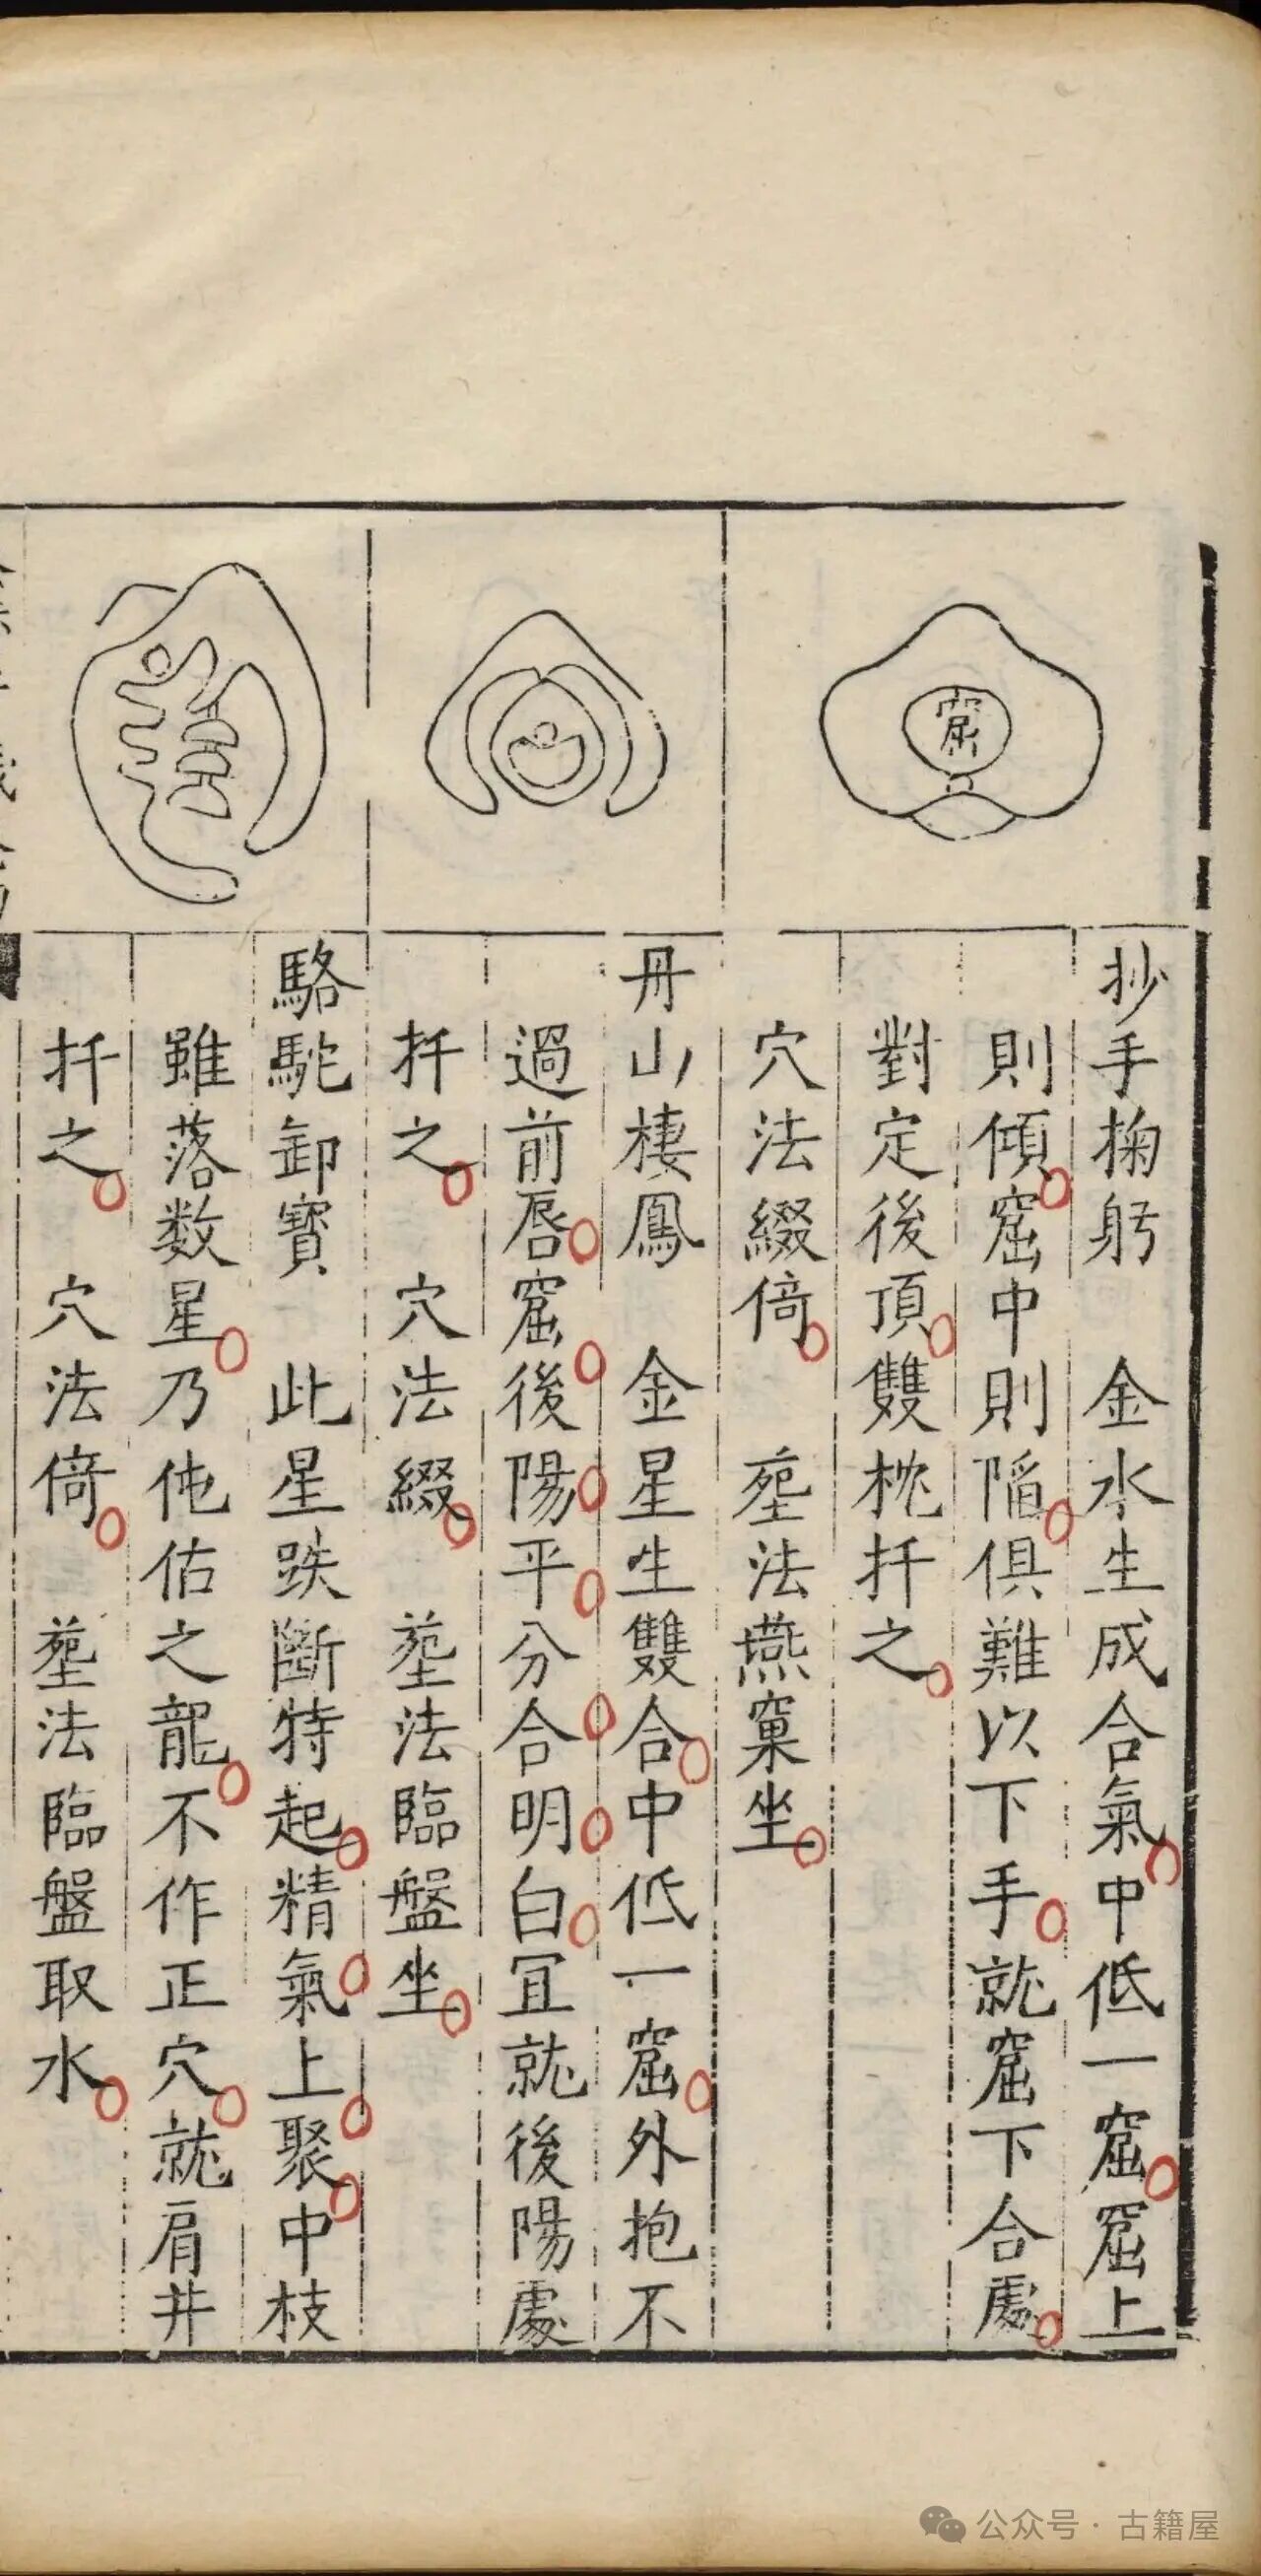 窟
抄手掬躬　金水生成合氣中低一窟窟上
則傾窟中則陷俱難以下手就窟下合處
對定後頂雙枕扦之
穴法綴倚　塟法燕窠坐
丹山棲鳳　金星生雙合中低一窟外抱不
過前唇窟後陽平分合明白冝就後陽處
扦之　穴法綴　塟法臨盤坐
駱駝卸寳　此星跌斷特起精氣上聚中枝
雖落数星乃佗佑之龍不作正穴就肩井
扦之　穴法倚　塟法臨盤取水
公众号·古籍屋